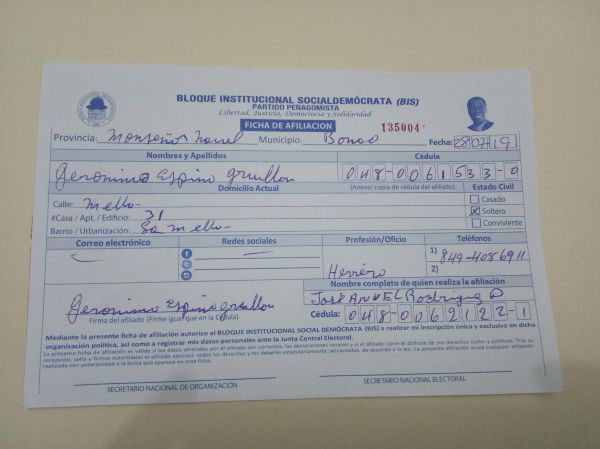 BLOQUE INSTITUCIONAL SOCIALDEMÓCRATA (BIS)
PARTIDO PEÑAGOMISTA
Libertad, Justicia, Democracia y Solidaridad
FICHA DE AFILIACION 135004
Provincia: Monseñor Nouel Municipio: Bonao Fecha: 28/07/19
Nombres y Apellidos Cédula
Geronimo Espino Grullon 048-0061533-0
Domicilio Actual (Anexar copia de cédula del afiliado) Estado Civil
Calle: Mella- Casado
#Casa / Apt. / Edificio: 31 X Soltero
Barrio / Urbanización: Conviviente
Correo electrónico Redes sociales Profesión/Oficio Teléfonos
1) 849-4086911
Herrero 2)
Nombre completo de quien realiza la afiliación
Geronimo Espino Grullon Jose Rodriguez
Firma del afiliado (Firme igual que en la Cédula) Cédula: 048-0069122-1
Mediante la presente ficha de afiliación autorizo al BLOQUE INSTITUCIONAL SOCIAL DEMÓCRATA (BIS) a realizar mi inscripción única y exclusiva en dicha
organización política, así como a registrar mis datos personales ante la Junta Central Electoral.
La presente ficha de afiliación es válida si los datos ofrecidos por el afiliado son correctos, las declaraciones veraces y si el afiliado tiene el disfrute de sus derechos civiles y políticos. Tras su
recepción, sello y firmas autorizadas el afiliado ejercerá todos los derechos y los deberes estatutariamente sancionados, de acuerdo a la ley. La presente afiliación anula cualquier afiliación
realizada con anterioridad a la fecha que aparece en esta ficha.
SECRETARIO NACIONAL DE ORGANIZACIÓN SECRETARIO NACIONAL ELECTORAL